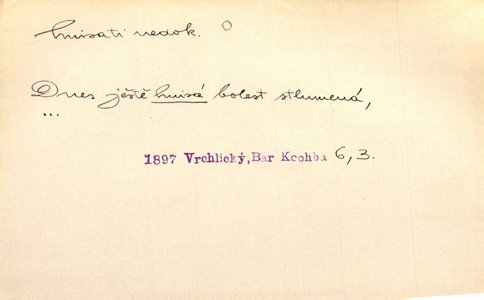 hnisati nedok. O
Dnes ještě hnisá bolest stlumená,
...
1897 Vrchlický,Bar Kochba 6,3.